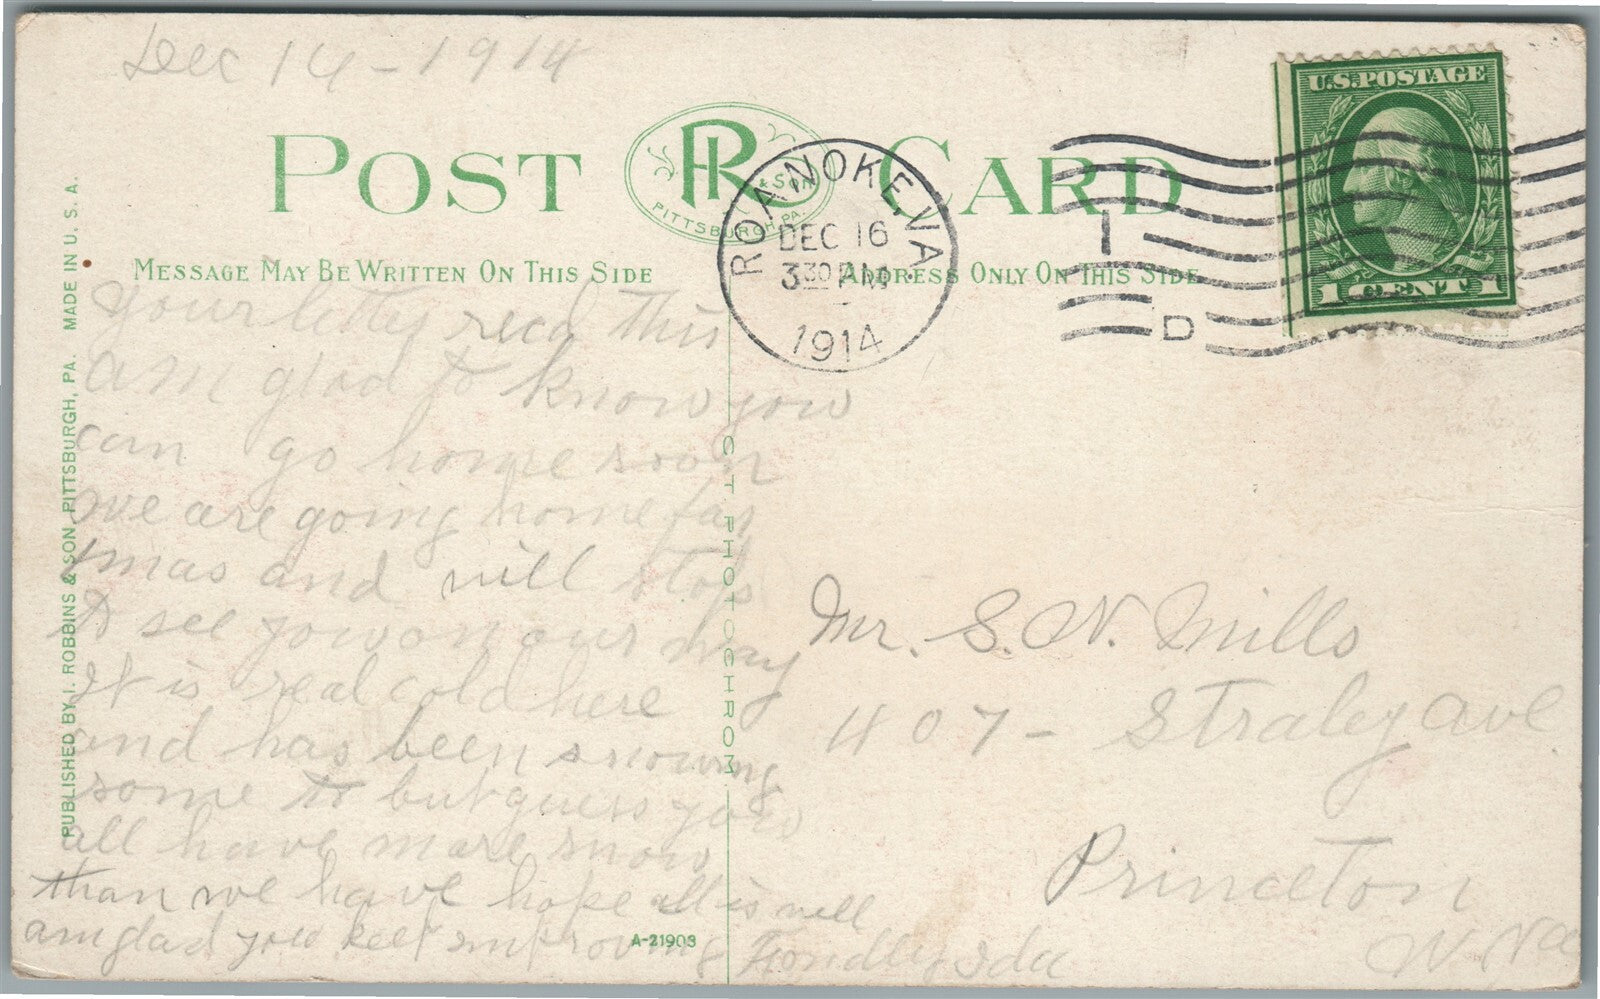 Dec 14 - 1914
POST CARD
R & SON
PITTSBURGH, PA.
MESSAGE MAY BE WRITTEN ON THIS SIDE
ADDRESS ONLY ON THIS SIDE
ROANOKE, VA
DEC 16
3 30 PM
1914
1
D
U.S. POSTAGE
1 CENT 1
PUBLISHED BY I. ROBBINS & SON, PITTSBURGH, PA. MADE IN U. S. A.
C. T. PHOTOCHROM
your letter recd this
am glad to know you
can go home soon
we are going home for
xmas and will stop
to see you on our way
It is real cold here
and has been snowing
some to but guess you
all have more snow
than we have hope all is well
am glad you keep improving Fondley Ida
A-21903
Mr. S. N. Mills
407 - Straley Ave
Princeton
W. Va